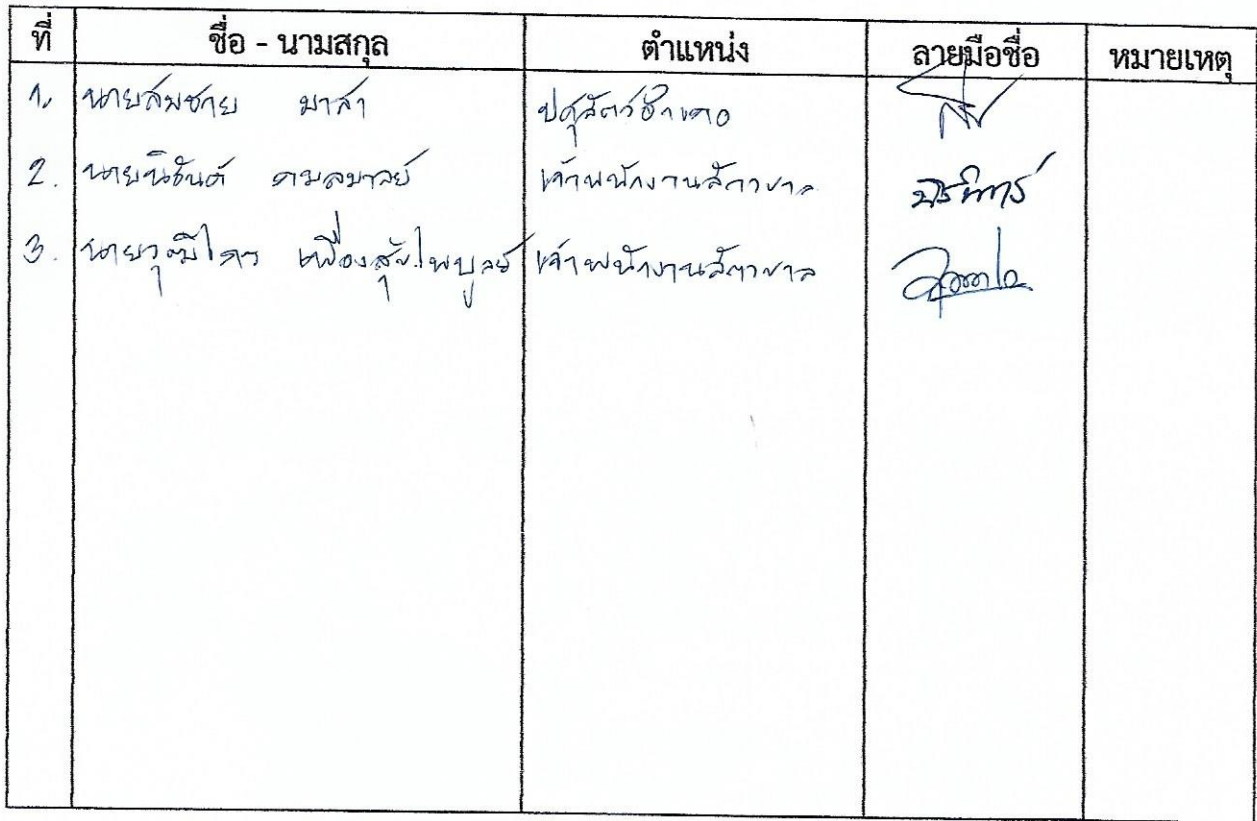 ที่ ชื่อ - นามสกุล ตำแหน่ง ลายมือชื่อ หมายเหตุ
1. นายสมชาย มาลา ปศุสัตว์อำเภอ
2. นายนิรันต์ กมลมาลย์ เจ้าพนักงานสัตวบาล
3. นายวุฒิไกร เฟื่องสุขไพบูลย์ เจ้าพนักงานสัตวบาล